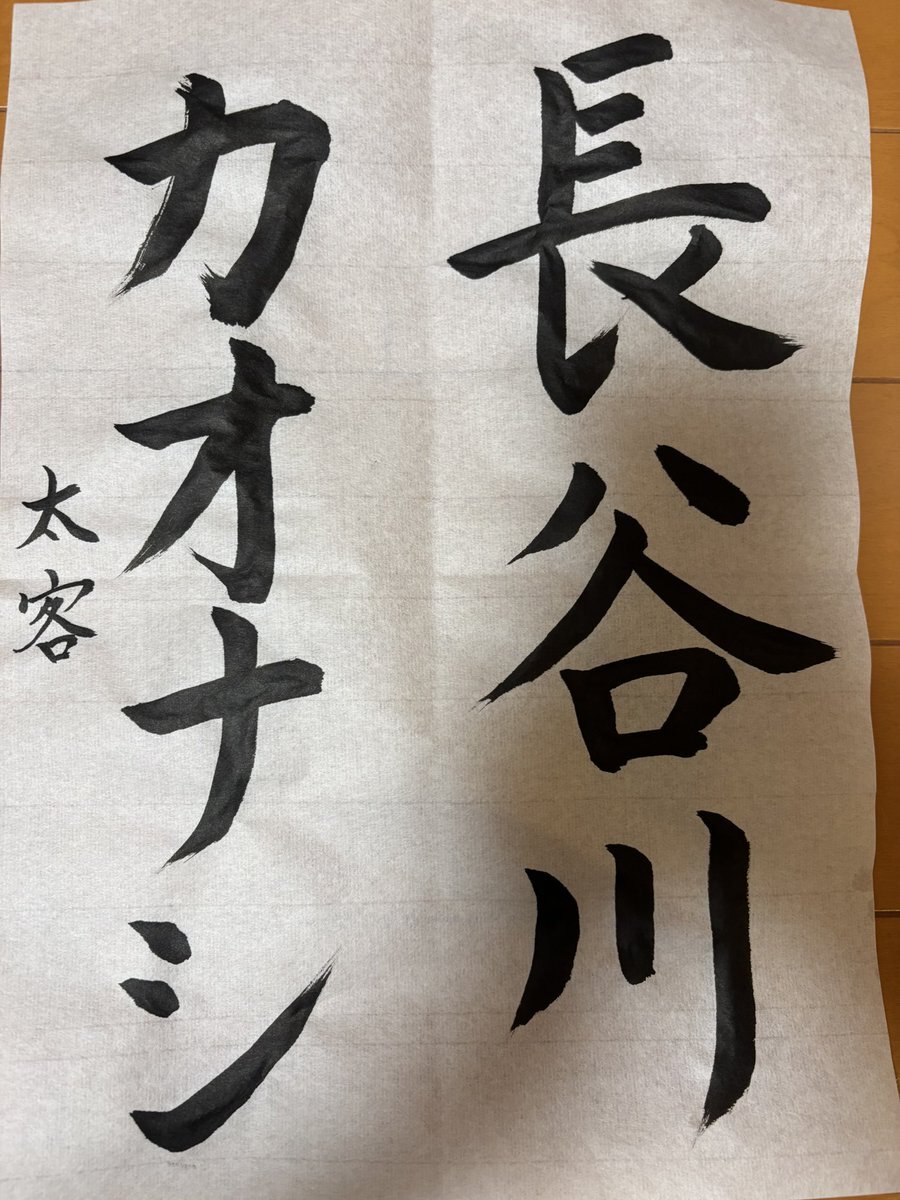 長谷川
カオナシ
太客